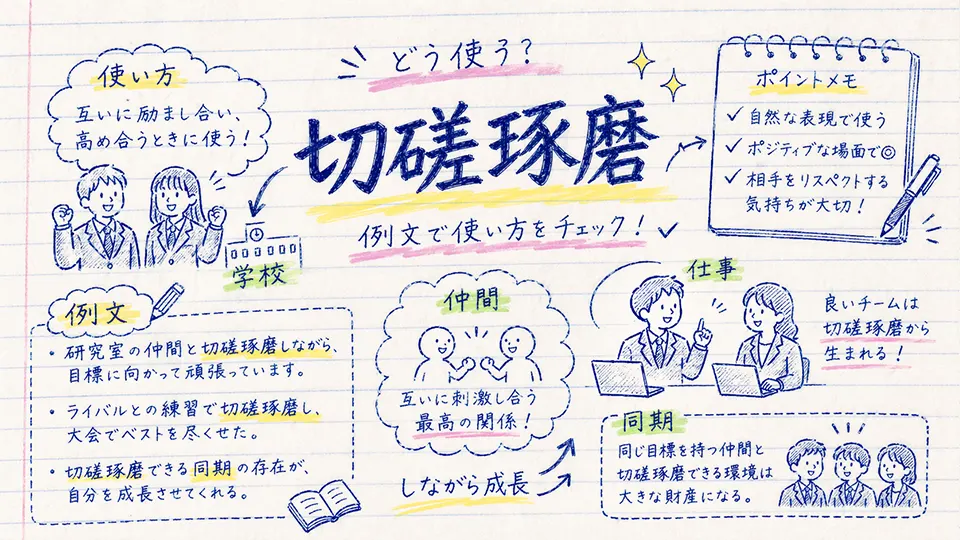 どう使う?
切磋琢磨
例文で使い方をチェック!✓
使い方
互いに励まし合い、
高め合うときに使う!
学校
ポイントメモ
✓ 自然な表現で使う
✓ ポジティブな場面で◎
✓ 相手をリスペクトする
気持ちが大切!
例文
・研究室の仲間と切磋琢磨しながら、
目標に向かって頑張っています。
・ライバルとの練習で切磋琢磨し、
大会でベストを尽くせた。
・切磋琢磨できる同期の存在が、
自分を成長させてくれる。
仲間
互いに刺激し合う
最高の関係!
しながら成長
仕事
良いチームは
切磋琢磨から
生まれる!
同期
同じ目標を持つ仲間と
切磋琢磨できる環境は
大きな財産になる。